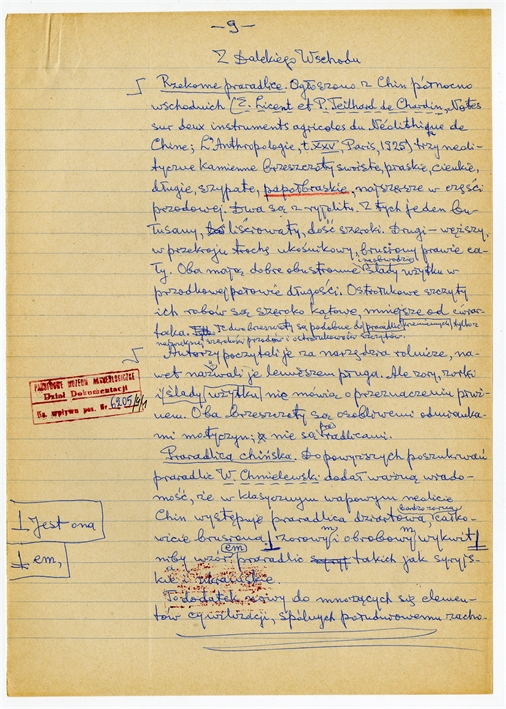 — 9 —
Z Dalekiego Wschodu
Rzekome praradlice. Ogłoszono z Chin północno
wschodnich (E. Licent et P. Teilhard de Chardin, Notes
sur deux instruments agricoles du Néolithique de
Chine; L'Anthropologie, t. XXV, Paris, 1925), trzy neoli-
tyczne kamienne brzeszczoty płaskie, cienkie,
długie, szpate, najszersze w części
przodowej. Dwa są z ryolitu. Z tych jeden
liściowaty, dość szeroki. Drugi – węższy,
w przekroju trochę ukośnikowy, brusiony prawie ca-
ły. Oba mają dobre obustronne ślady użytku w
przodkowej połowie długości. Ostrołukowe szczyty
ich robów są szeroko kątowe, mniejsze od ćwiar-
taka. Te dwa brzeszczoty są podobne do praradlic tylko z
szerokości przodów i ostrołuków szczytów.
Autorzy poczytali je za narzędzia rolnicze, na-
wet nazwali je lemieszem pługa. Ale zory, rorki
i ślady użytku nie mówią o przeznaczeniu płuż-
nem. Oba brzeszczoty są osobliwemi odmianka-
mi motyczyn; nie są praradlicami.
Praradlica chińska. Do powyższych poszukiwań
praradlic W. Chmielewski dodał ważną wiado-
mość, że w klasycznym wapowym neolicie
bardzo zorna
Chin występuje praradlica dziarstowa, całko-
wicie brusiona ⊥ zorowy i obrobowy wykwit ⊥
niby wzór praradlic takich jak syryjs-
kie i ukraińskie.
To dodatek nowy do mnożących się elemen-
tów cywilizacji, spólnych południowemu zacho-
PAŃSTWOWE MUZEUM ARCHEOLOGICZNE
Dział Dokumentacji
Ks. wpływu poz. Nr 6205/9/1
⊥ Jest ona
⊥ em,